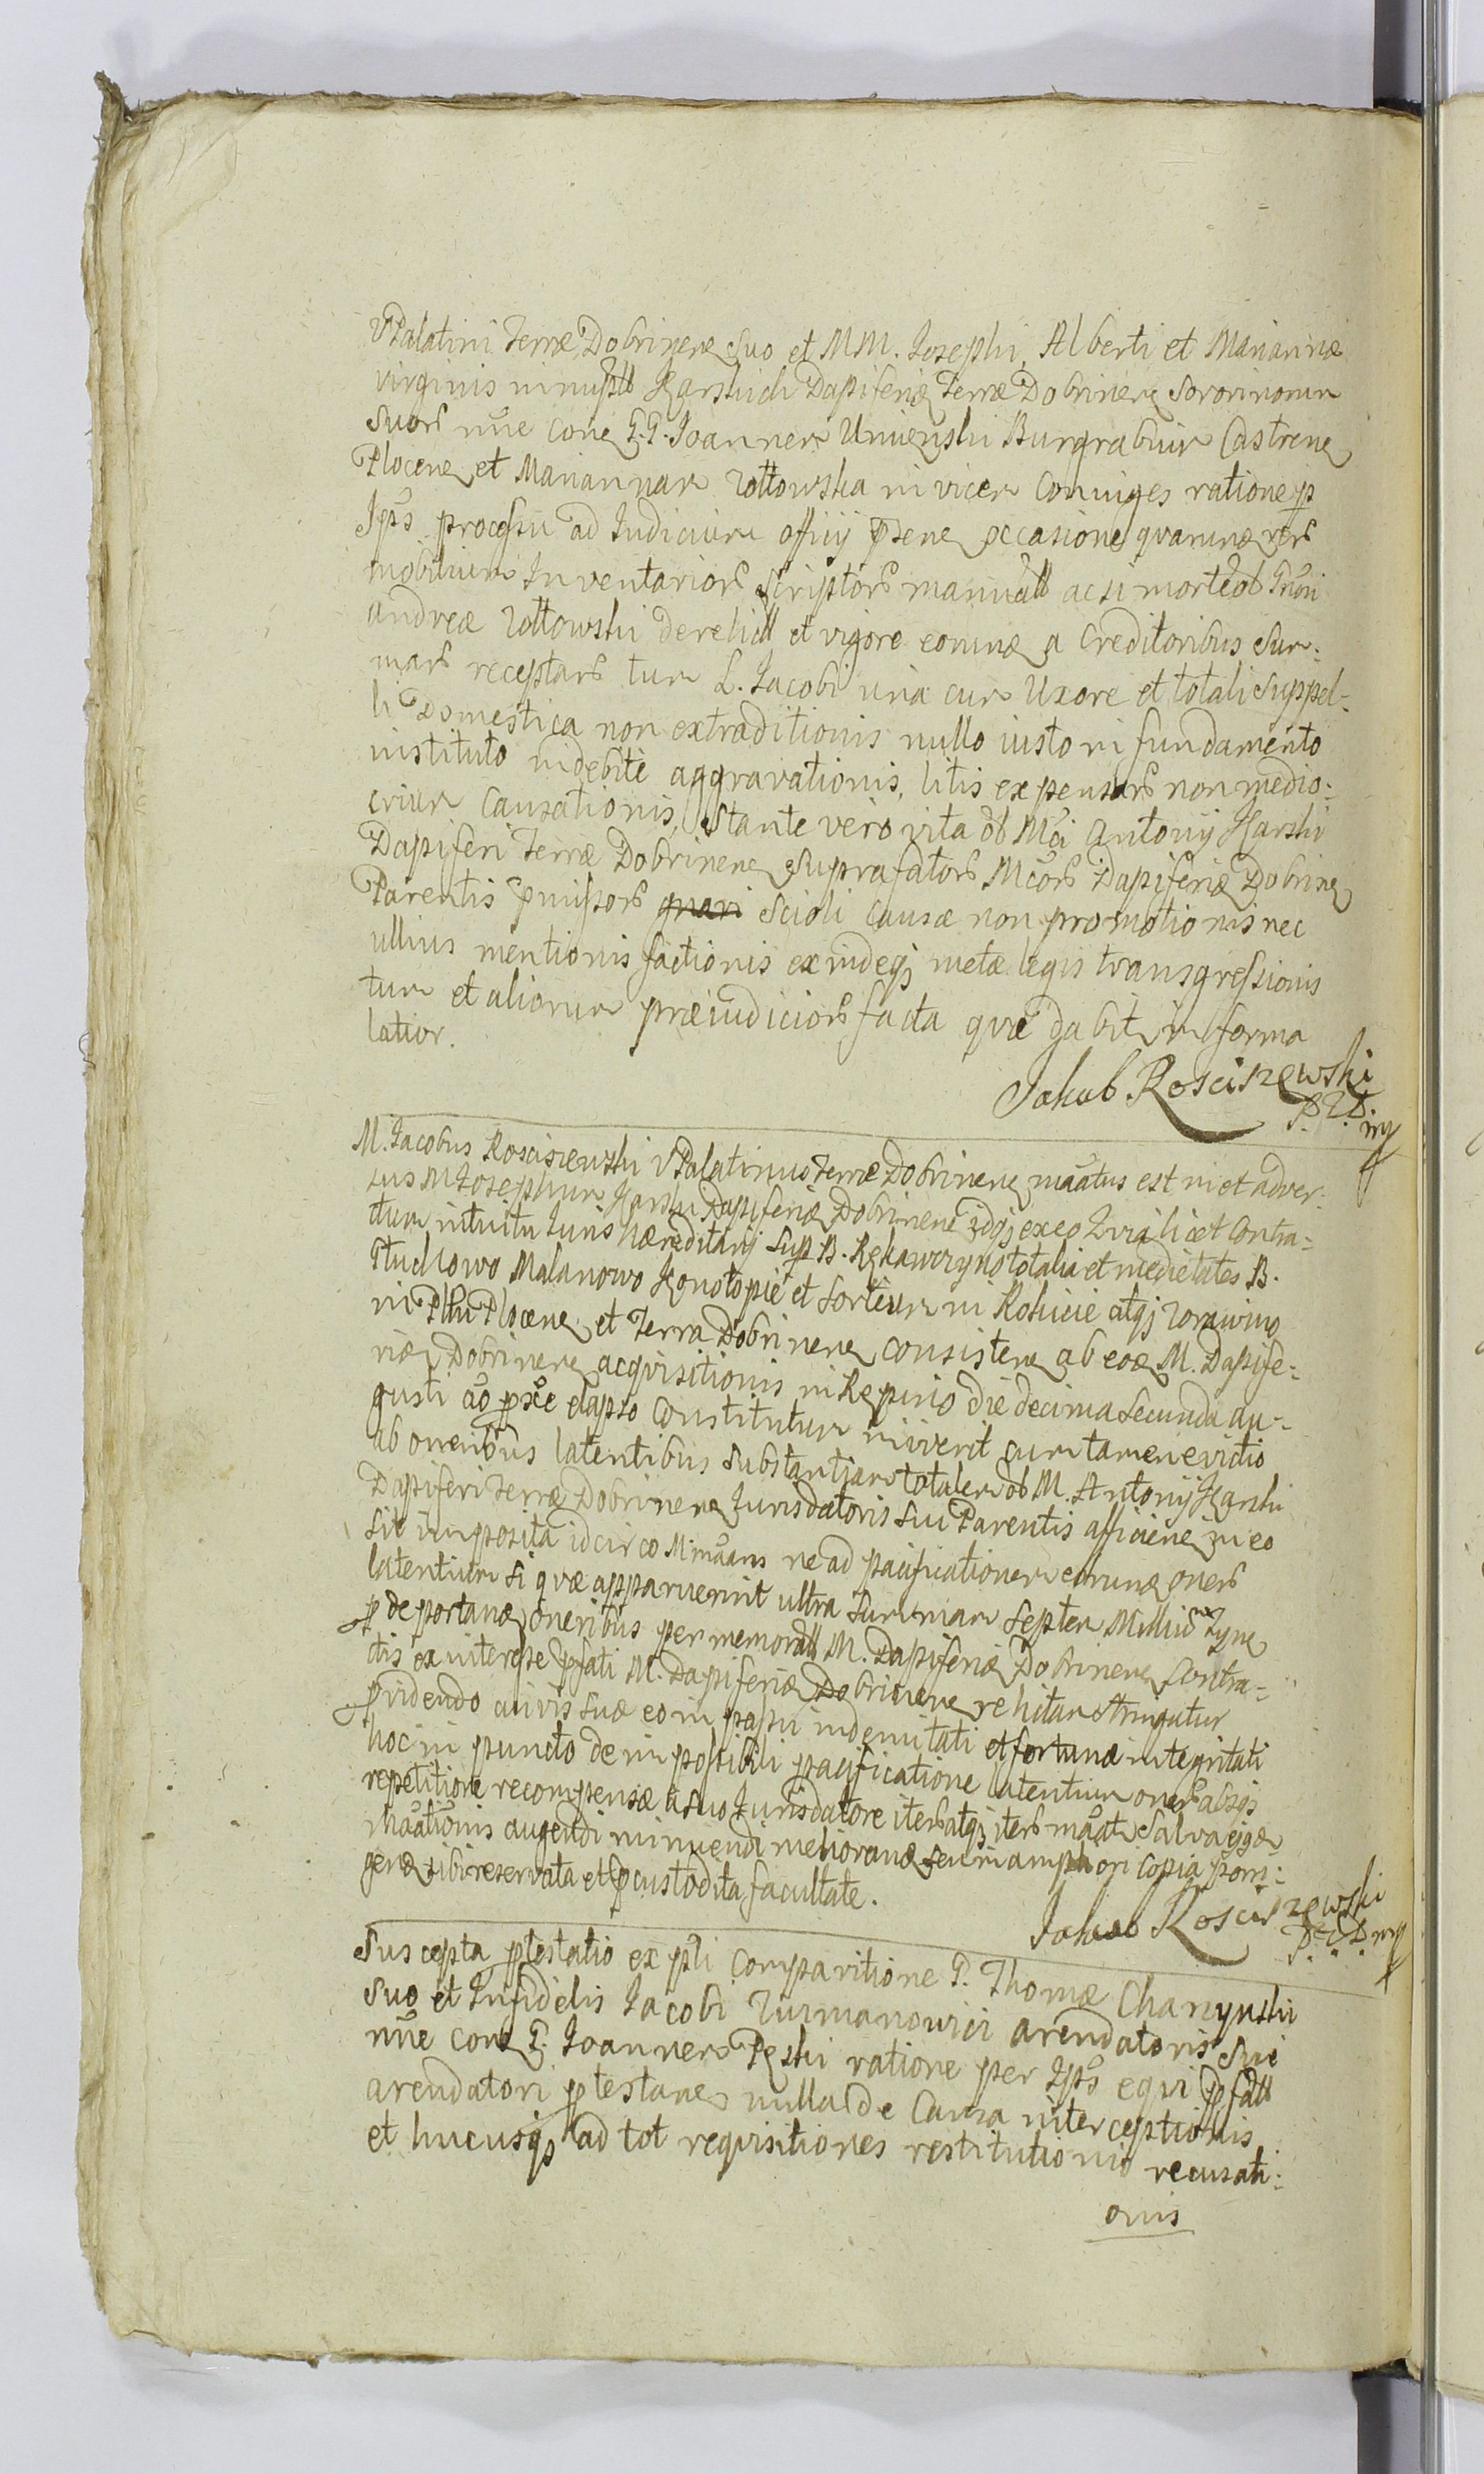 VPalatini Terræ Dobrinen Suo et MM. Josephi, Alberti et Mariannæ
virginis innupt Karskich Dapiferiæ Terræ Dobrinen Sororinorum
Suor nne cone G.G. Joannem Unienski Burgrabium Castren
Plocen et Mariannam Zołtowska invicem Coniuges ratione p
Ips processu ad Judicium officij psenc occasione quarunæ rer
mobilium Inventarior Scriptor manual ac si morte ol Gnosi
andreæ Zołtowski derelict et vigore eorunæ a Creditoribus Sum:
mar receptar tum L. Jacobi una cum Uxore et totali Suppel-
li Domestica non extraditionis nullo iusto in fundamento
instituto indebite aggravationis, litis expensar non medio:
crium Causationis, Stante vero vita ol Mci Antonij Karski
Dapiferi Terræ Dobrinen Suprafator Mcor Dapiferiæ Dobrinen
Parentis pmissor Scioli causæ non promotionis nec
ullius mentionis factionis exindeq metæ legis transgressionis
tum et aliorum præiudicior facta quæ dabit in forma
latior.
Jakub Rosciszewski
P.Z.D. mp
M. Jacobus Rosciszewski VPalatinus Terræ Dobrinen maatus est in et adver:
sus M Josephum Karski Dapiferiæ Dobrinen idq ex eo Quia licet Contra=
ctum intuitu Juris hæreditarij Sup B. Rękawczyno totalia et medietates B.
Tłuchowo Malanowo Konotopie et Sortium in Rokicie atq Zorawino
in Pltu Plocen et Terra Dobrinen consisten ab eoæ M. Dapife=
riæ Dobrinen acquisitionis in Rępino die decima secunda au=
gusti ao pxe elapso Constitutum iniverit cum tamen evictio
ab oneribus latentibus Substantiam totalem ol M. Antonij Karski
Dapiferi Terræ Dobrinen Jurisdatoris Sui Parentis afficien in eo
Sit imposita idcirco M maans ne ad pacificationem eorunæ oner
latentium si quæ apparuerint ultra Summam Septem Millium
p de portanæ oneribus per memorat M. Dapiferiæ Dobrinen Contra=
ctis ex interesse pfati M. Dapiferiæ Dobrinen rehitan stringatur
pvidendo cuivis suæ eo in passu indemnitati et fortunæ integritati
hoc in puncto de impossibili pacificatione latentium oner absq
repetitione recompensæ a suo Jurisdatore iter atq iter maat Salva ejgæ
Maationis augendi minuendi meliorandæ seu in ampliori copia porri:
genæ sibi reservata et pcustodita facultate.
Jakub Rosciszewski
P.Z.D. mp
Suscepta ptestatio ex psti Comparitione G. Thomæ Charzynski
Suo et Infidelis Jacobi Zurmanowici arendatoris Sui
nne cone G. Joannem Pęski ratione per Ips equi pfat
arendatori ptestane nulla de Causa interceptionis
et hucusq ad tot requisitiones restitutionis recusati:
onis